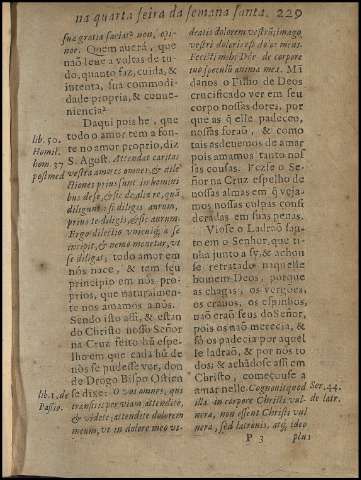 na quarta feira da semana santa. 229
sua gratia faciat? non, opi-
nor. Quem auerá, que
naõ leue a voltas de tu-
do, quanto faz, cuida, &
intenta, sua commodi-
dade propria, & conue-
niencia?
Daqui pois he, que
todo o amor tem a fon-
te no amor proprio, diz
S. Agust. Attendat caritas
vestra amores omnes, & dile
ctiones prius sunt in homini
bus de se, & sic de altere, quã
diligunt: si diligis aurum,
prius te diligis, & sic aurum.
Ergo dilectio vnicuiq; a se
incipit, & nemo monetur, vt
se diligat; todo amor em
nós nace, & tem seu
principio em nós pro-
prios, que naturalmen-
te nos amamos a nós.
Sendo isto assi, & estan-
do Christo nosso Señor
na Cruz feito hũ espe-
lho em que cada hũ de
nós se pudesse ver, don
de Drogo Bispo Ostien
se dixe: O vos omnes, qui
transitis per viam attendite,
& videte; attendite dolorem
meum, vt in dolore meo vi-
lib. 50.
Homil.
hom. 37
post med
lib. 1. de
Passio.
deatis dolorem vestrũ; imago
vestri doloris est dolor meus.
Fecisti mihi Deº de corpore
tuo speculũ animæ meæ. Mã
danos o Filho de Deos
crucificado ver em seu
corpo nossas dores, por
que as q̃ elle padeceo,
nossas foraõ, & como
tais as deuemos de amar
pois amamos tanto nos-
sas cousas. Fezse o Se-
ñor na Cruz espelho de
nossas almas em q̃ veja-
mos nossas culpas consi
deradas em suas penas.
Viose o Ladraõ jun-
to em o Senhor, que ti-
nha junto a sy, & achou
se retratado naquelle
homem Deos, porque
as chagas, os vergões,
os crauos, os espinhos,
naõ eraõ seus do Señor,
pois os naõ merecia, &
só os padecia por aquel
le ladraõ, & por nós to
dos; & achãdose assi em
Christo, começouse a
amar nelle. Cognouit quod
illa in corpore Christi vul-
nera, non essent Christi vul
nera, sed latronis, atq; ideo
Ser. 44.
de latr.
P 3 plus